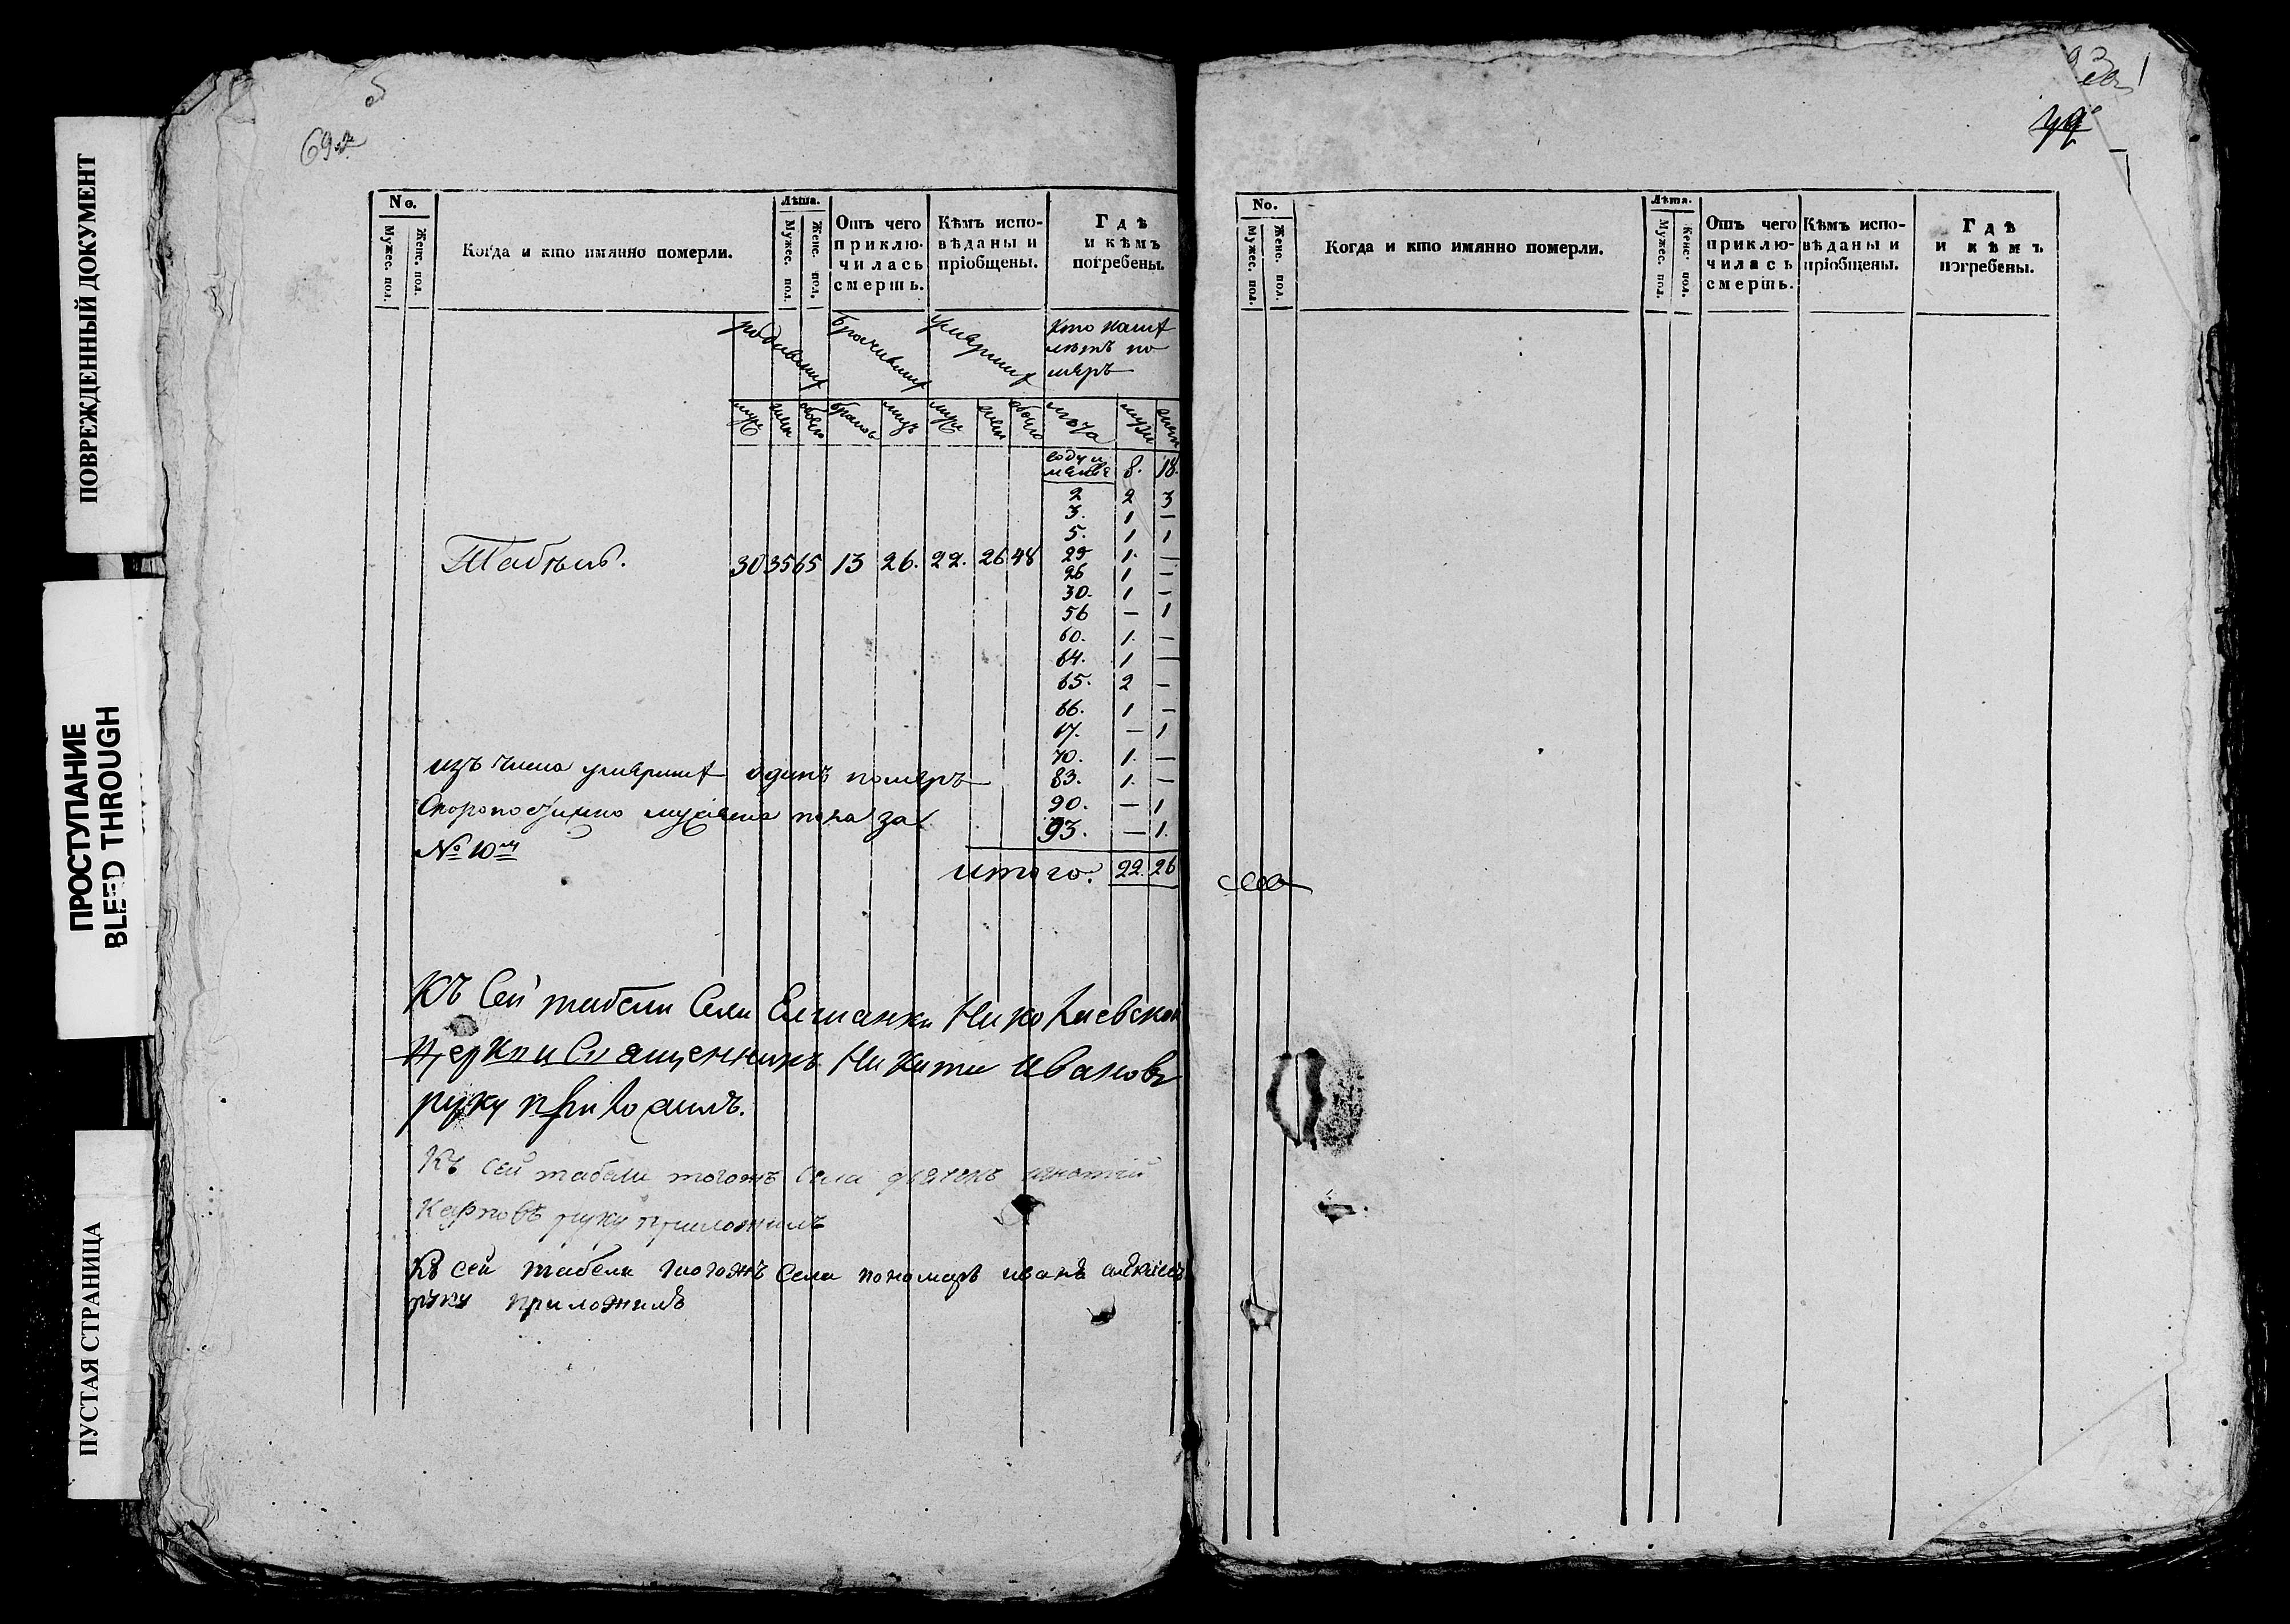 ПОВРЕЖДЕННЫЙ ДОКУМЕНТ
ПРОСТУПАНИЕ
BLEED THROUGH
ПУСТАЯ СТРАНИЦА
69
No.
Мужес. пол.
Женс. пол.
Когда и кто имянно померли.
Лѣта.
Мужес. пол.
Женс. пол.
Отъ чего
приклю-
чилась
смерть.
Кѣмъ испо-
вѣданы и
пріобщены.
Гдѣ
и кѣмъ
погребены.
родившихъ
брачившихъ
умершихъ
кто каких
лѣтъ по
меръ
муж
жен
обоего
браковъ
лицъ
муж
жен
обоего
лѣта
муж
жен
году и
менше 8. 18.
2 2 3
3. 1 —
5. 1 1
25 1. —
26 1 —
30. 1 —
56 — 1
60. 1. —
64. 1 —
65. 2 —
66. 1 —
67. — 1
70. 1. —
83. 1. —
90. — 1
93. — 1.
Табель. 30 35 65 13 26. 22. 26 48
изъ числа умершихъ одинъ померъ
Скоропостижно мужеска пола за
№ 10м
итого. 22. 26
Къ Сей табели Села Елшанки Николаевской
Церкви Священникъ Никита Ивановъ
руку приложилъ.
Къ сей табели тогожъ села дьячекъ
Карповъ руку приложилъ
Къ сей табели тогожъ Села пономарь иванъ алексѣевъ
руку приложилъ
No.
Мужес. пол.
Женс. пол.
Когда и кто имянно померли.
Лѣта.
Мужес. пол.
Женс. пол.
Отъ чего
приклю-
чилась
смерть.
Кѣмъ испо-
вѣданы и
пріобщены.
Гдѣ
и кѣмъ
погребены.